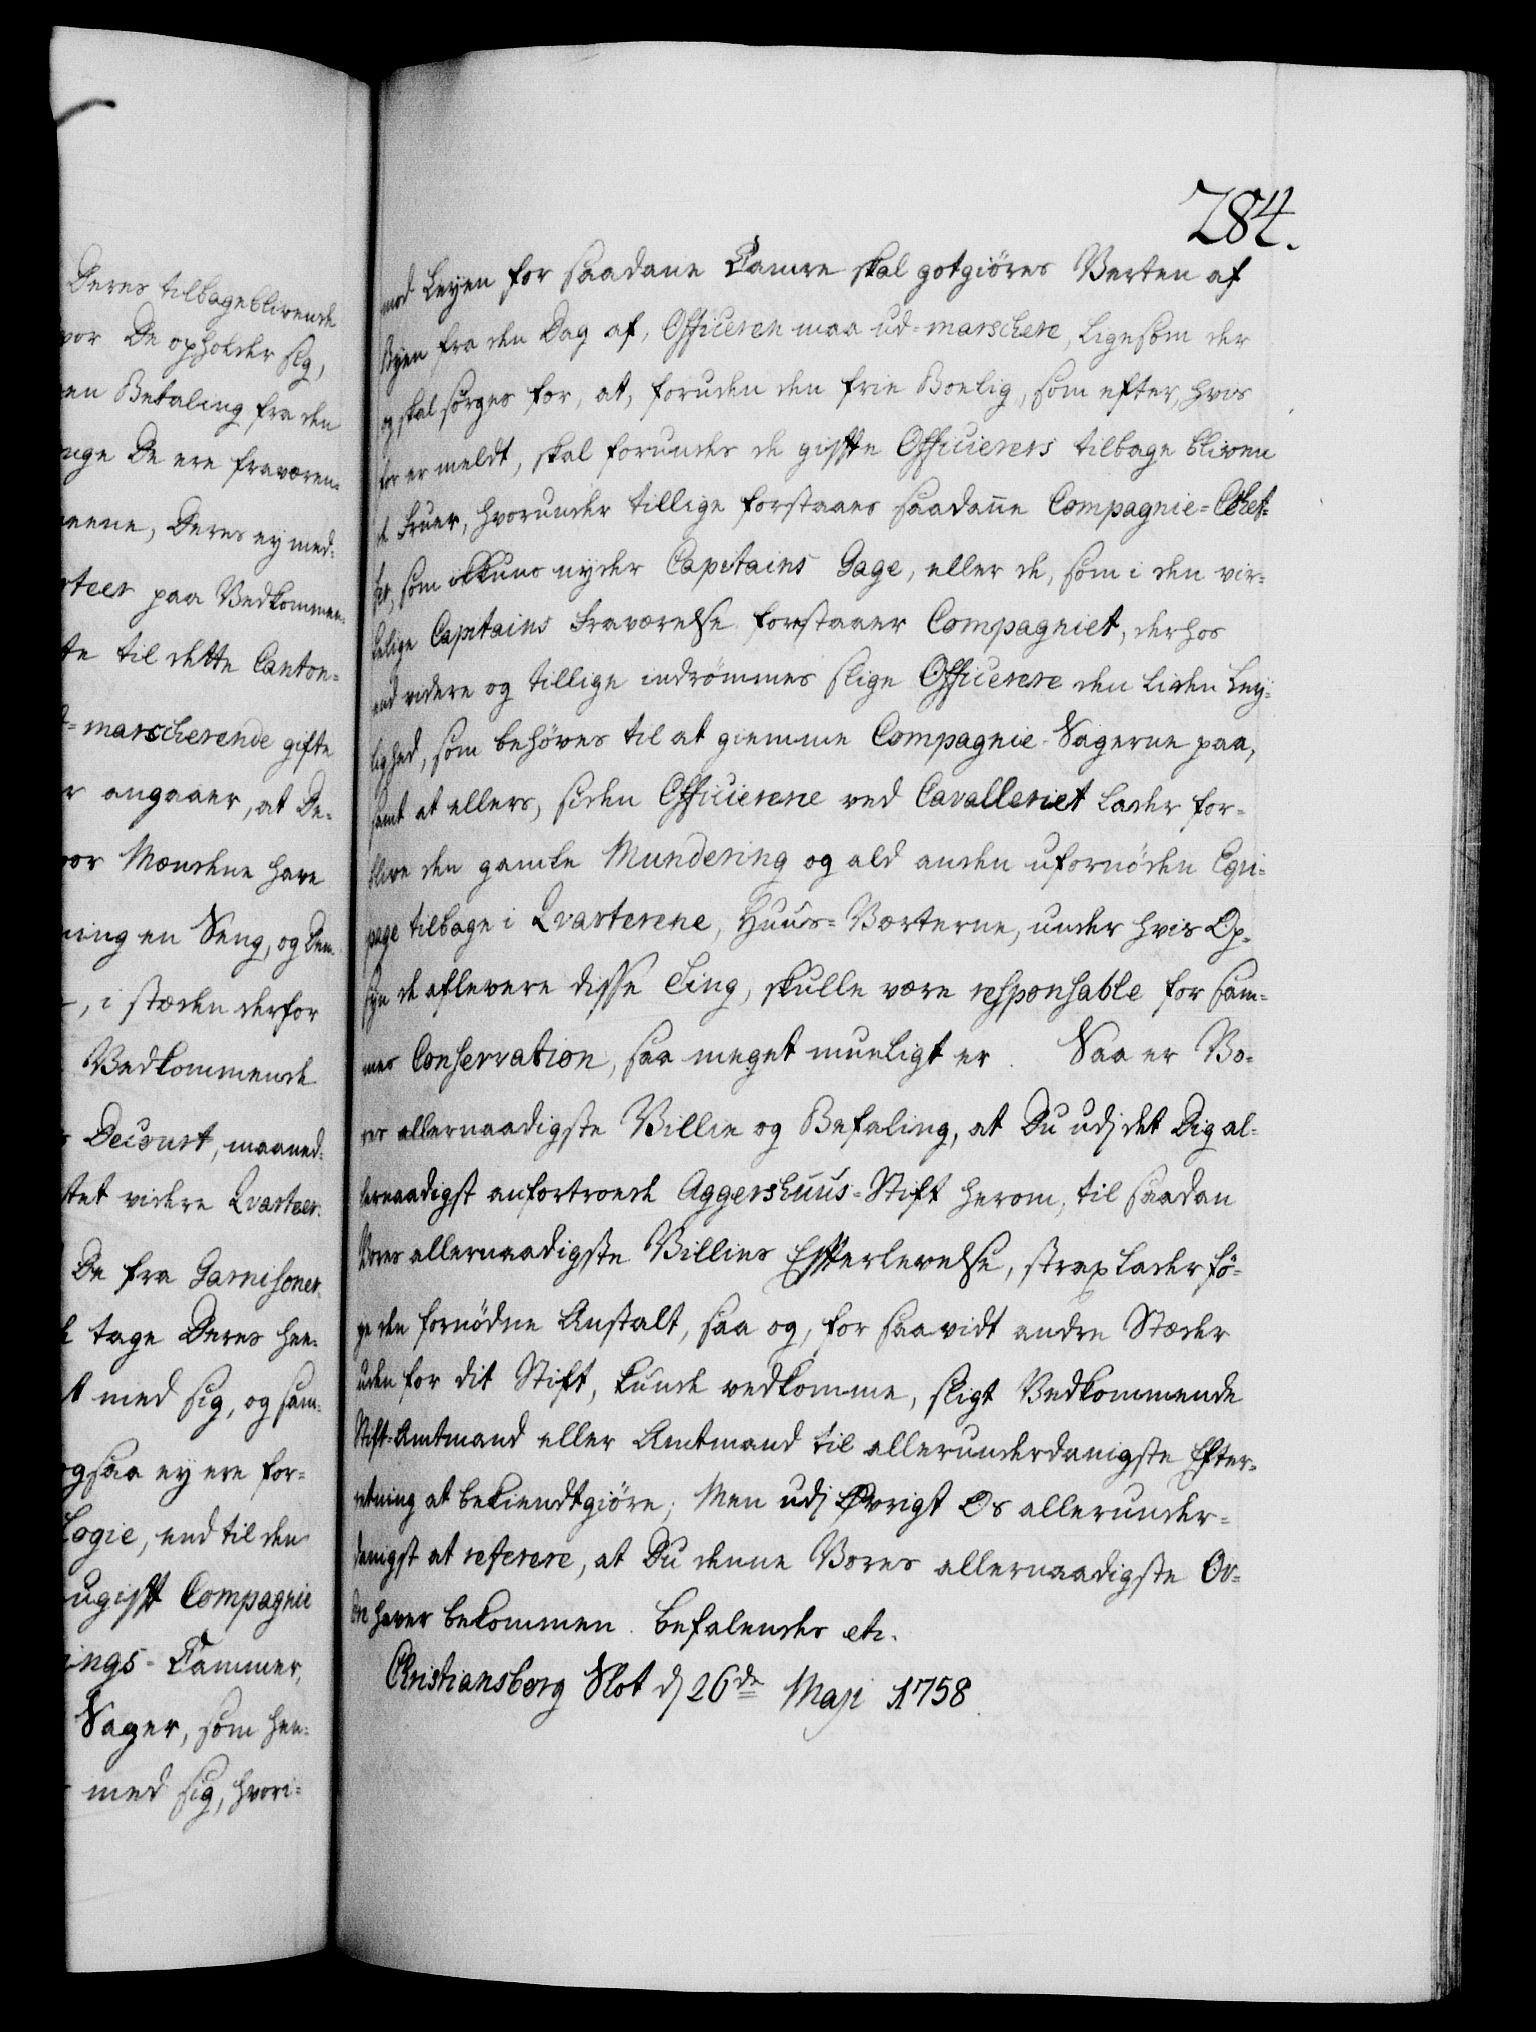 284.
Deres tilbageblivende
vor De opholder sig,
en Betaling fra den
nge De ere fraværen=
eene, Deres ey med=
rteer paa Vedkommen=
te til dette Canton=
d=marscherende gifte
r angaaer, at De=
vor Mændene have
ning en Seng, og
, i stæden derfor
Vedkommende
Decourt, maaned=
stet videre Qvarteer.
De fra Garnisoner
tage Deres hen=
t med sig, og sam=
ogsaa ey ere for=
Logie, end til den
ugifft Compagnie
ings=Cammer,
Sager, som hen=
med sig, hvori=
mod Leyen for saadane Camre skal gotgiöres Verten af
Byen fra den Dag af, Officeren maa ud=marschere, ligesom der
og skal sørges for, at, foruden den frie Boelig, som efter, hvis
for er meldt, skal forundes de giffte Officierers tilbage bliven
de Fruer, hvorunder tillige forstaaes saadanne Compagnie=Chef=
fer, som ikkuns nyder Capitains Gage, eller de, som i den vir=
kelige Capitains Fraværelse forestaaer Compagniet, derhos
end videre og tillige indrömmes slige Officerere den liden Ley=
lighed, som behöves til at giemme Compagnie-Sagerne paa,
samt at ellers, siden Officierene ved Cavalleriet lader for=
blive den gamle Mundering og ald anden ufornöden Equi=
page tilbage i Qvarterene, Huus=Værterne, under hvis Op=
syn de aflevere disse Ting, skulle være responsable for sam=
mes Conservation, saa meget mueligt er. Saa er Vo=
res allernaadigste Villie og Befaling, at Du udj det Dig al=
lernaadigst anfortroede Aggershuus=Stift herom, til saadan
Vores allernaadigste Villies Effterlevelse, strax lader fö=
ye den fornödne Anstalt, saa og, for saavidt andre Stæder
uden for dit Stift, kunde vedkomme, sligt Vedkommende
Stift=Amtmand eller Amtmand til allerunderdanigste Efter=
retning at bekiendtgiöre; Men udj Øvrigt Os allerunder=
danigst at referere, at Du denne Vores allernaadigste Or=
dre haver bekommen. Befalendes etc.
Christiansborg Slot d 26de Maji 1758.